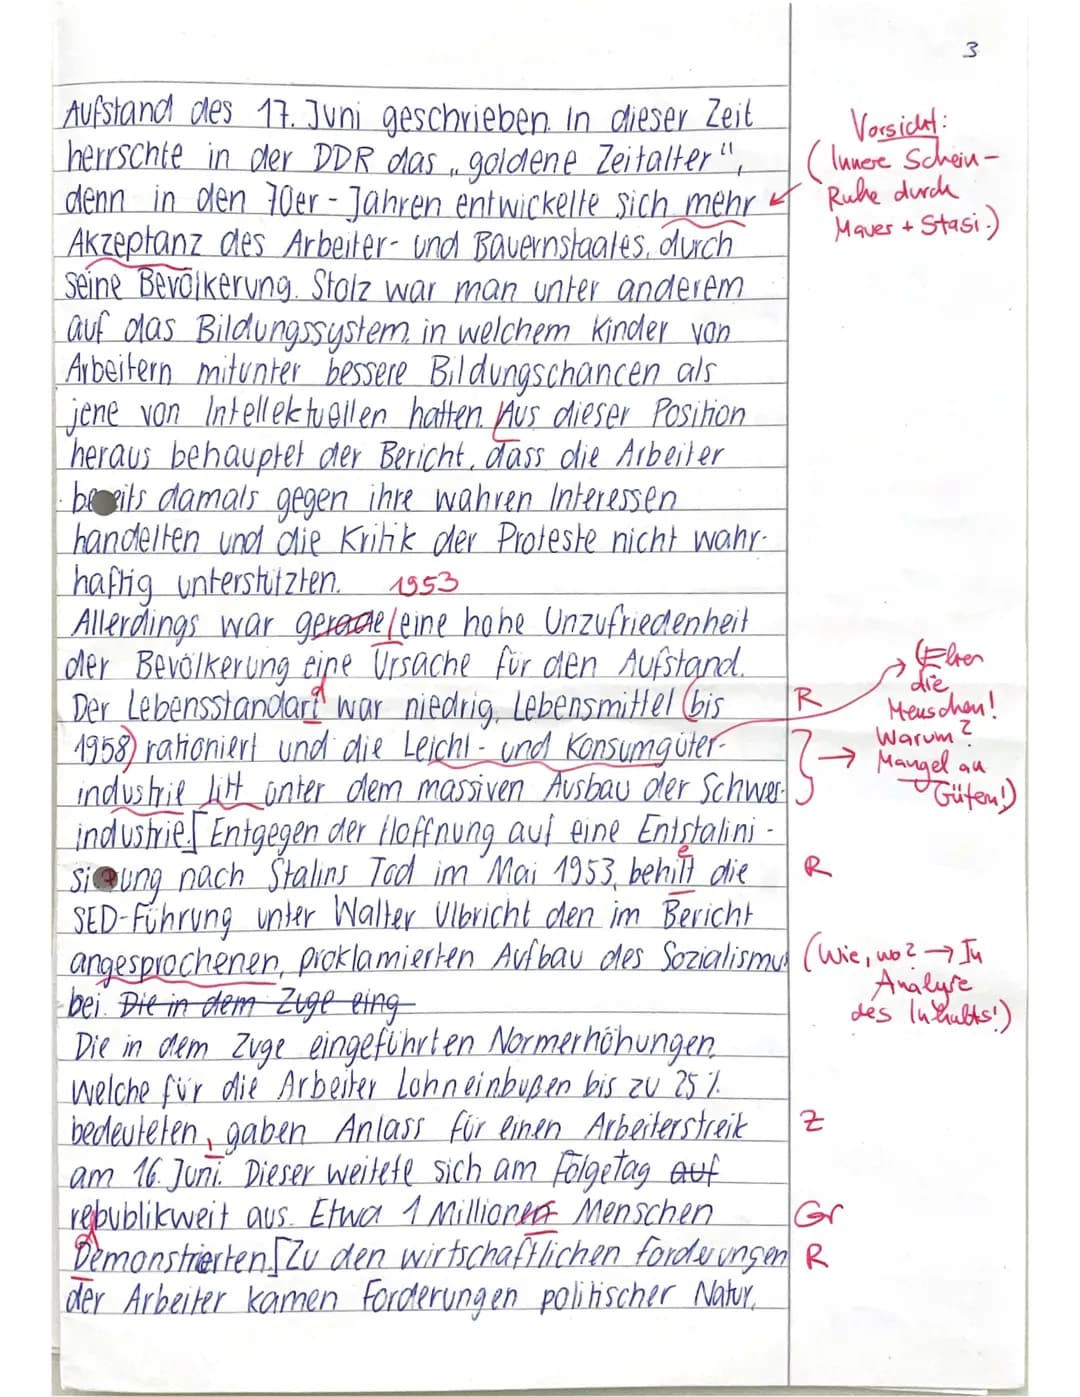 3
Aufstand des 17. Juni geschrieben. In dieser Zeit
herrschte in der DDR das „goldene Zeitalter",
denn in den 70er-Jahren entwickelte sich mehr
Akzeptanz des Arbeiter- und Bauernstaates, durch
seine Bevölkerung. Stolz war man unter anderem
auf das Bildungssystem, in welchem Kinder von
Arbeitern mitunter bessere Bildungschancen als
jene von Intellektuellen hatten. Aus dieser Position
heraus behauptet der Bericht, dass die Arbeiter
bereits damals gegen ihre wahren Interessen
handelten und die Kritik der Proteste nicht wahr-
haftig unterstützten. 1953
Allerdings war gerade eine hohe Unzufriedenheit
der Bevölkerung eine Ursache für den Aufstand.
Der Lebensstandart d war niedrig, Lebensmittel (bis
1958) rationiert und die Leicht- und Konsumgüter-
industrie litt unter dem massiven Ausbau der Schwer-
industrie. Entgegen der Hoffnung auf eine Entstalini-
sierung nach Stalins Tod im Mai 1953, behilt e die
SED-Führung unter Walter Ulbricht den im Bericht
angesprochenen, proklamierten Aufbau des Sozialismus
bei. Die in dem Zuge eing
Die in dem Zuge eingeführten Normerhöhungen,
welche für die Arbeiter Lohneinbußen bis zu 25 %
bedeuteten, gaben Anlass für einen Arbeiterstreik
am 16. Juni. Dieser weitete sich am Folgetag auf
republikweit aus. Etwa 1 Millionen Menschen
d Demonstrierten. Zu den wirtschaftlichen Forderungen
der Arbeiter kamen Forderungen politischer Natur,
Vorsicht:
(Innere Schein-
Ruhe durch
Mauer + Stasi.)
R
(Eher
die
Menschen!
Warum?
Mangel an
Gütern!)
R
(Wie, wo? → In
Analyse
des Inhalts!)
Z
Gr
R